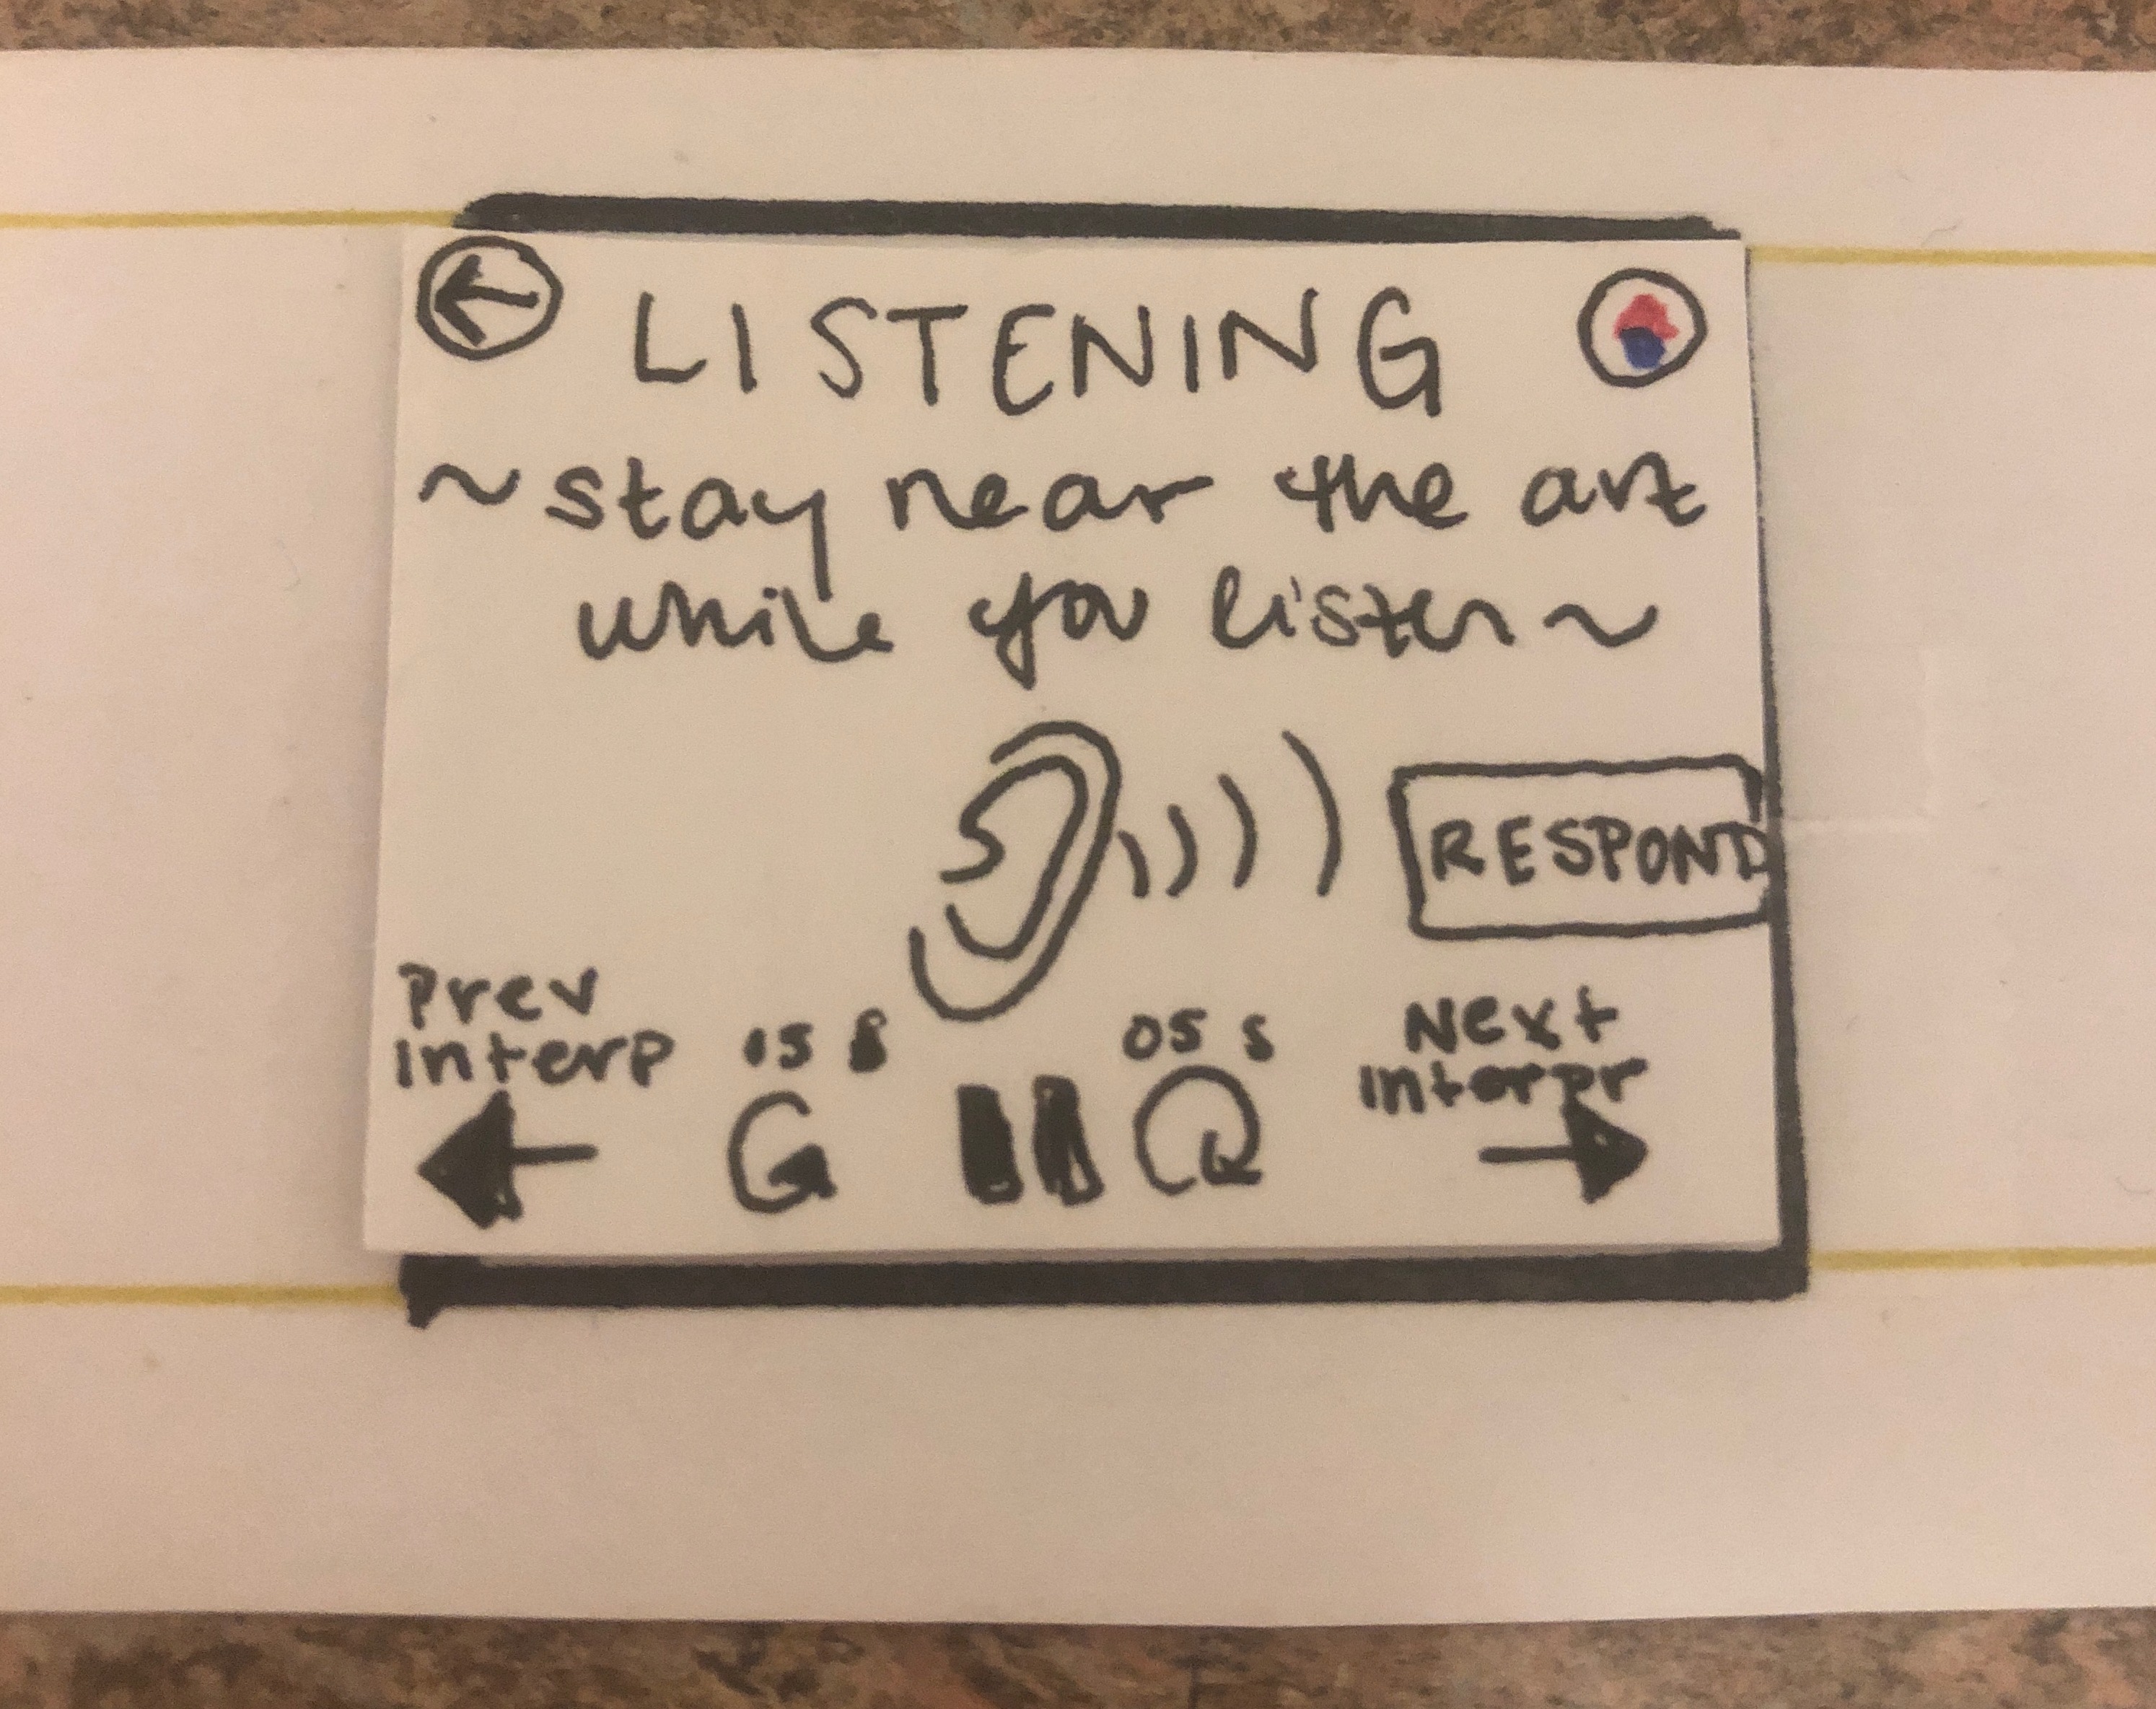 LISTENING
~stay near the art
while you listen~
RESPOND
Prev
Interp
15 s
05 s
Next
Interpr